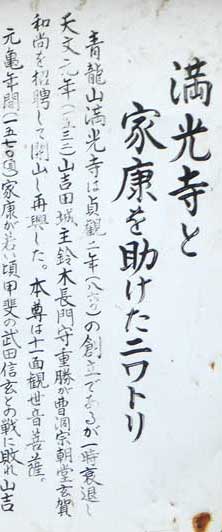 満光寺と
家康を助けたニワトリ
青龍山満光寺は貞観二年(八六〇)の創立であるが一時衰退し
天文元年(一五三二)山吉田城主鈴木長門守重勝が曹洞宗朝堂玄賀
和尚を招聘して開山し再興した。本尊は十一面観世音菩薩。
元亀年間(一五七〇頃)家康が若い頃甲斐の武田信玄との戦に敗れ山吉